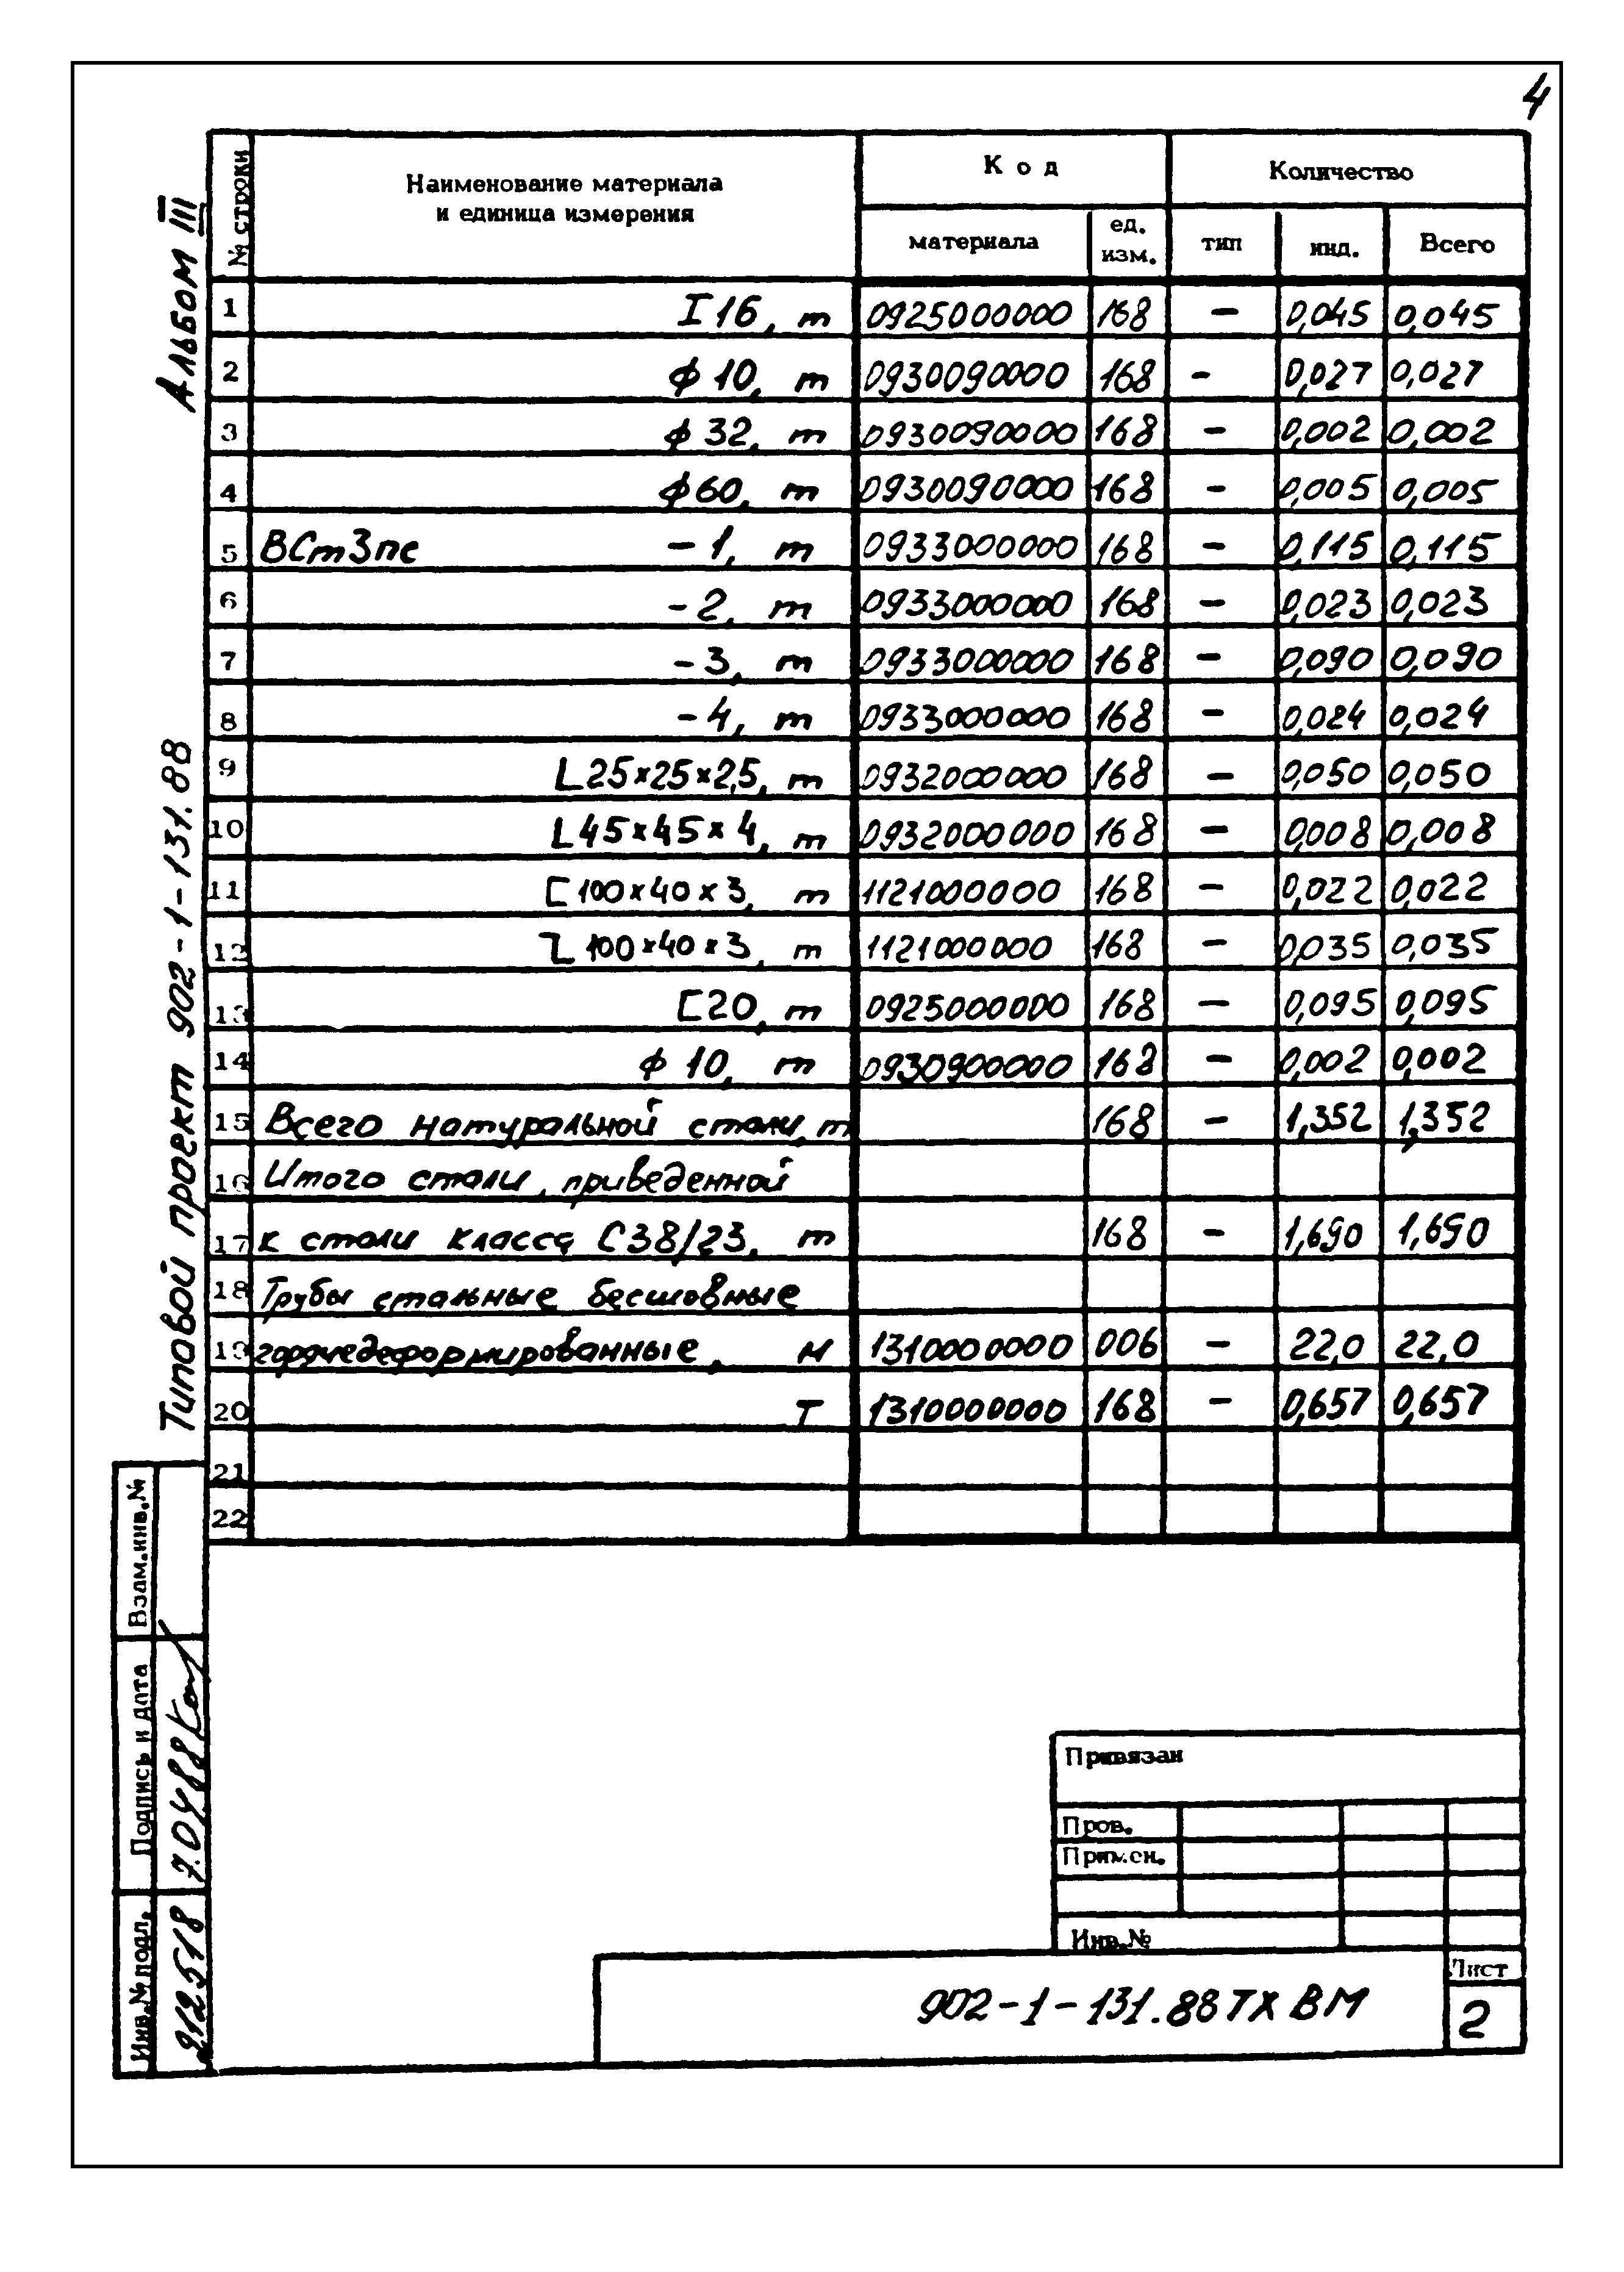 4
Альбом III
Типовой проект 902-1-131.88
№ строки
Наименование материала
и единица измерения
Код
Количество
материала
ед. изм.
тип
инд.
Всего
1 I 16, т 0925000000 168 – 0,045 0,045
2 ф 10, т 0930090000 168 – 0,027 0,027
3 ф 32, т 0930090000 168 – 0,002 0,002
4 ф 60, т 0930090000 168 – 0,005 0,005
5 ВСт3пс – 1, т 0933000000 168 – 0,115 0,115
6 – 2, т 0933000000 168 – 0,023 0,023
7 – 3, т 0933000000 168 – 0,090 0,090
8 – 4, т 0933000000 168 – 0,024 0,024
9 L 25×25×2,5, т 0932000000 168 – 0,050 0,050
10 L 45×45×4, т 0932000000 168 – 0,008 0,008
11 [ 100×40×3, т 1121000000 168 – 0,022 0,022
12 ʅ 100×40×3, т 1121000000 168 – 0,035 0,035
13 [ 20, т 0925000000 168 – 0,095 0,095
14 ф 10, т 0930900000 168 – 0,002 0,002
15 Всего натуральной стали, т 168 – 1,352 1,352
16 Итого стали, приведенной
17 к стали класса С38/23, т 168 – 1,690 1,690
18 Трубы стальные бесшовные
19 горячедеформированные, м 1310000000 006 – 22,0 22,0
20 Т 1310000000 168 – 0,657 0,657
21
22
Взам.инв.№
Подпись и дата
7.0488
Инв.№ подл.
912518
Привязан
Пров.
Примен.
Инв.№
902-1-131.88 ТХ ВМ
Лист
2